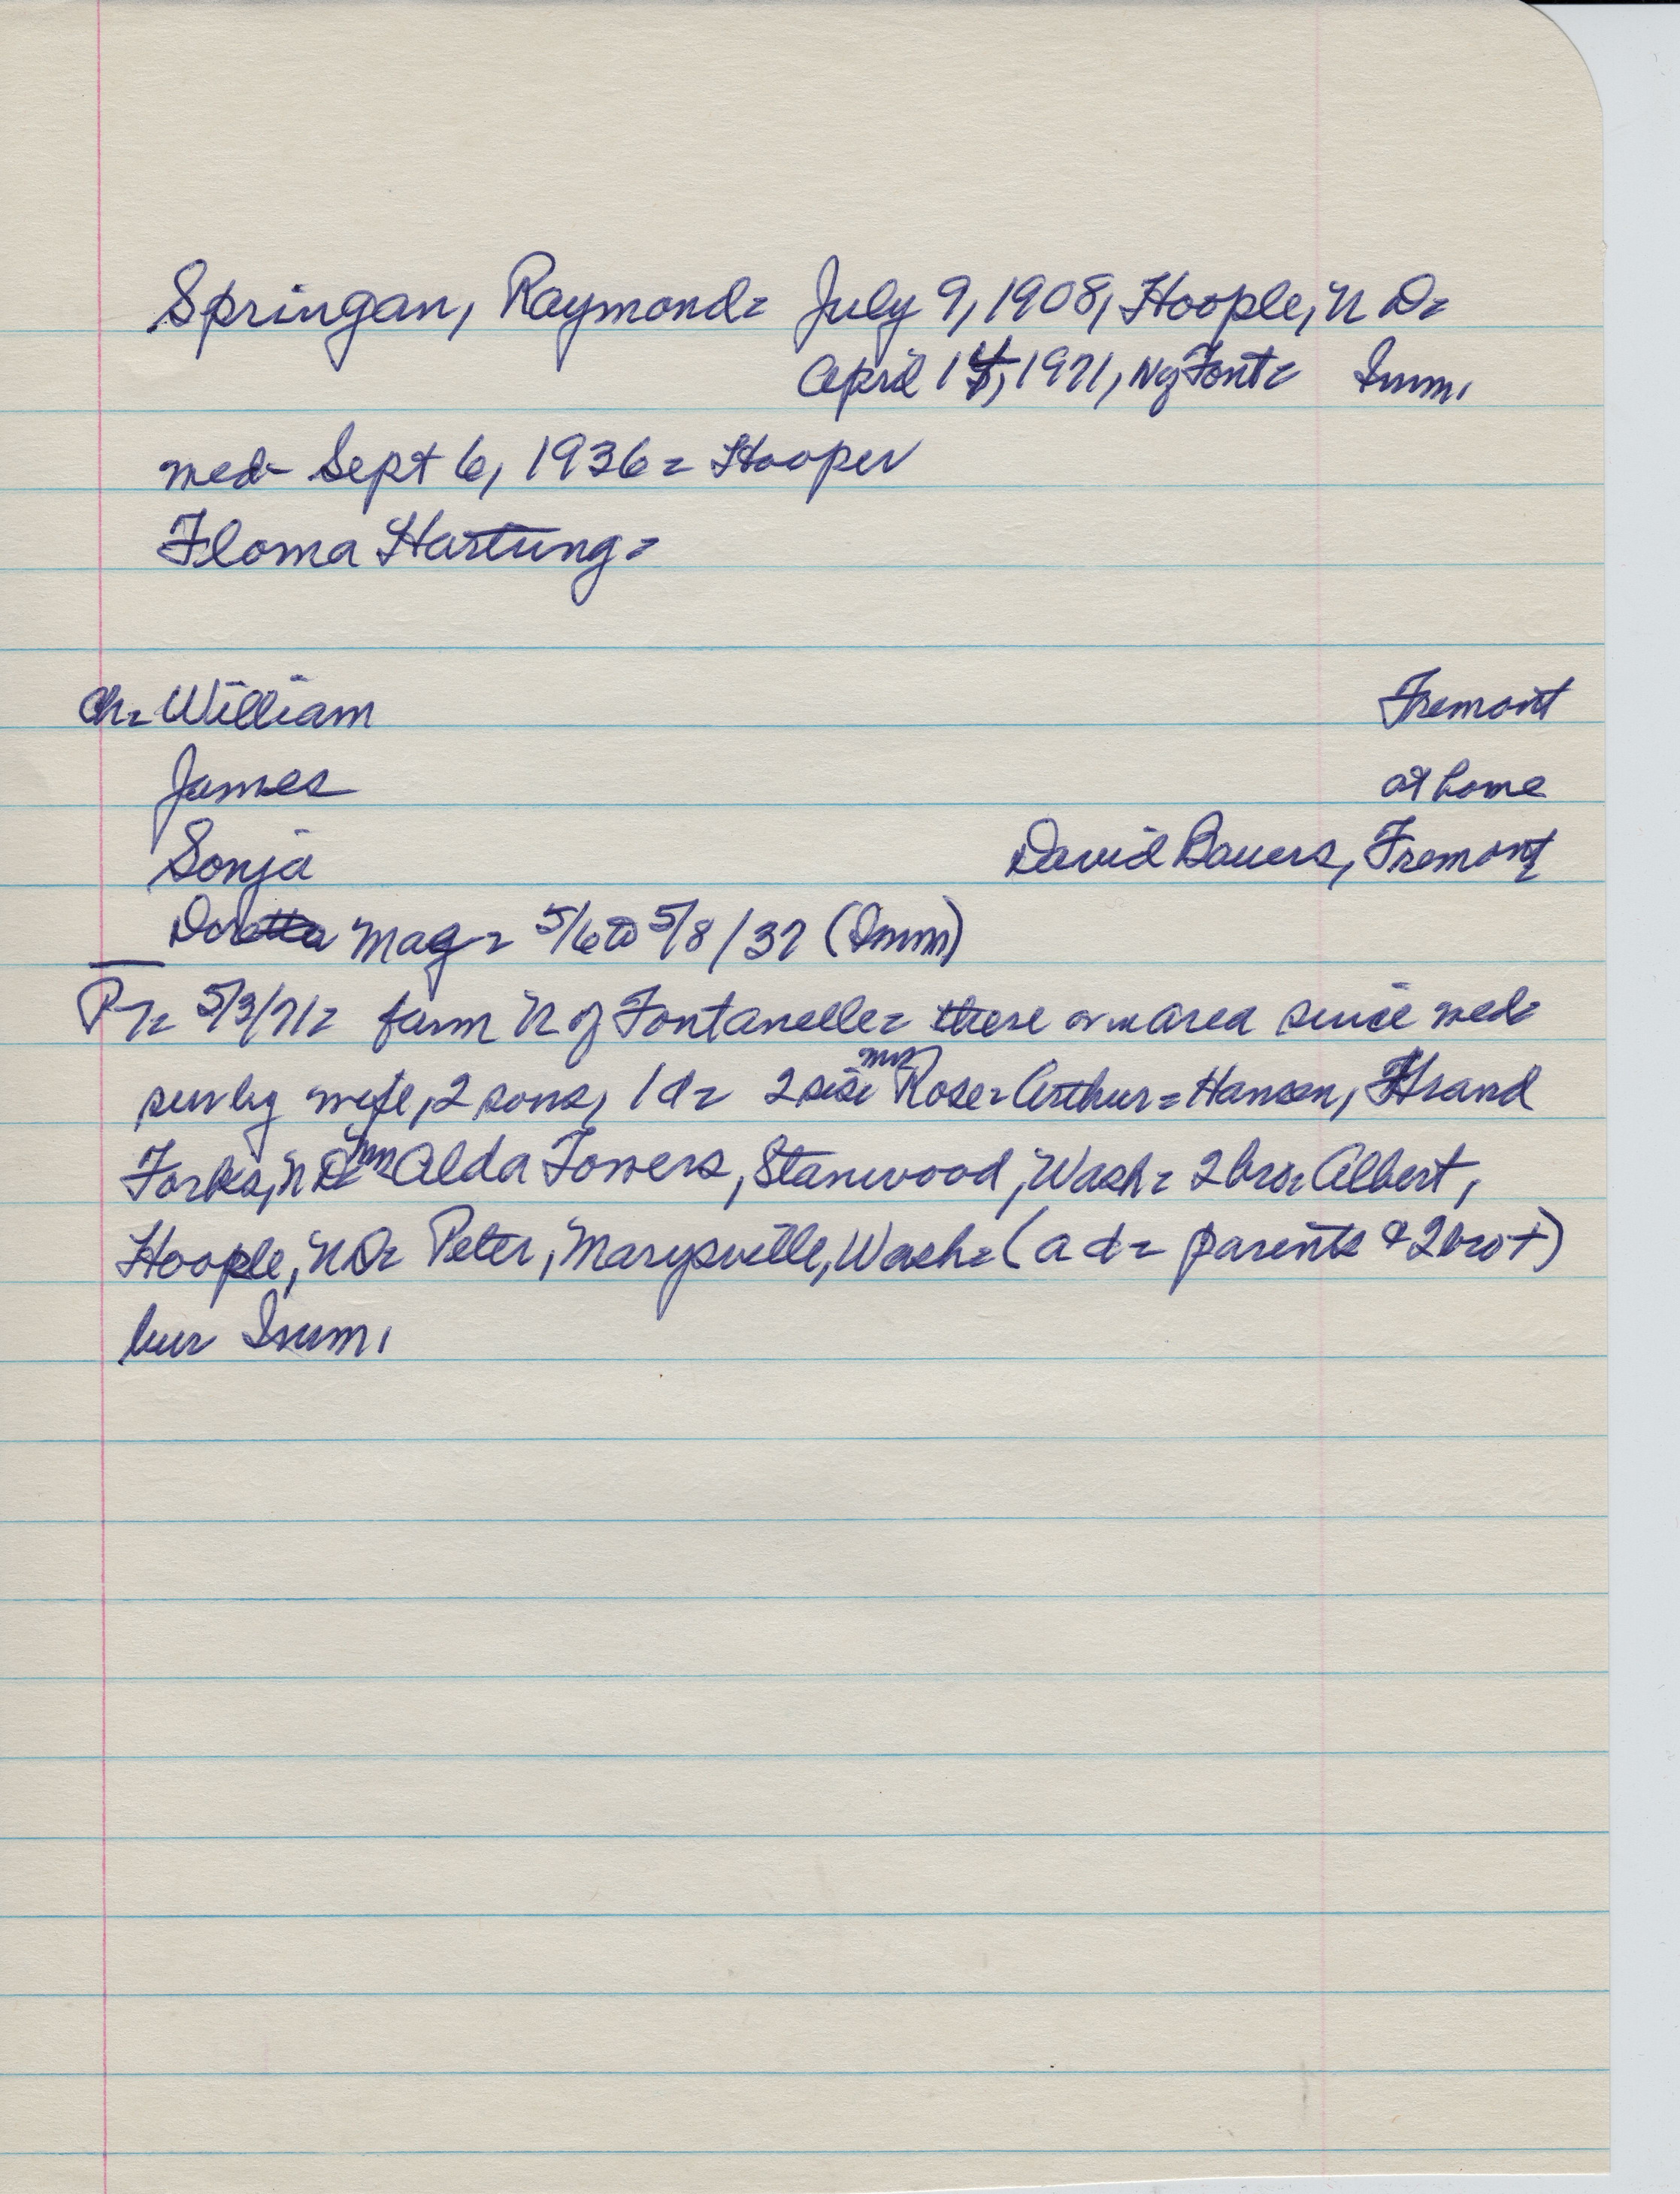 Springan, Raymond= July 9, 1908, Hoople, N D=
April 14, 1971, N of Font= Imm.
med- Sept 6, 1936= Hooper
Floma Hartung=
Ch= William Fremont
James at home
Sonja David Bauers, Fremont
Doretta Mag= 5/6 to 5/8/37 (Imm)
5/3/71= farm N of Fontanelle= there or in area since med=
surv by wife, 2 sons, 1 d= 2 sis= Mrs Rose= Arthur= Hansen, Grand
Forks, N D= Mrs Alda Towers, Stanwood, Wash= 2 bro= Albert,
Hoople, N D= Peter, Marysville, Wash= (a d= parents & 2 bro +)
bur Imm.